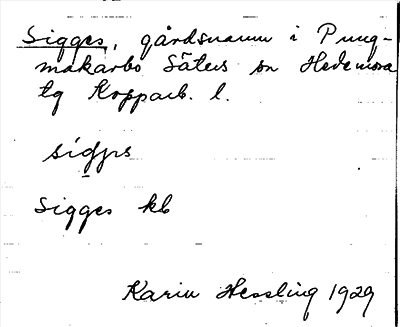 Sigges, gårdsnamn i Pung-
makarbo Säters sn Hedemora
tg Kopparb. l.
Sigges kb
Karin Hessling 1929